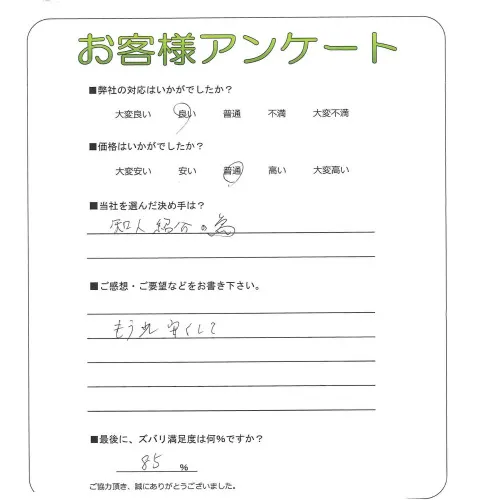 お客様アンケート
■弊社の対応はいかがでしたか？
大変良い 良い 普通 不満 大変不満
■価格はいかがでしたか？
大変安い 安い 普通 高い 大変高い
■当社を選んだ決め手は？
知人紹介の為
■ご感想・ご要望などをお書き下さい。
もう 安くして
■最後に、ズバリ満足度は何%ですか？
85 %
ご協力頂き、誠にありがとうございました。